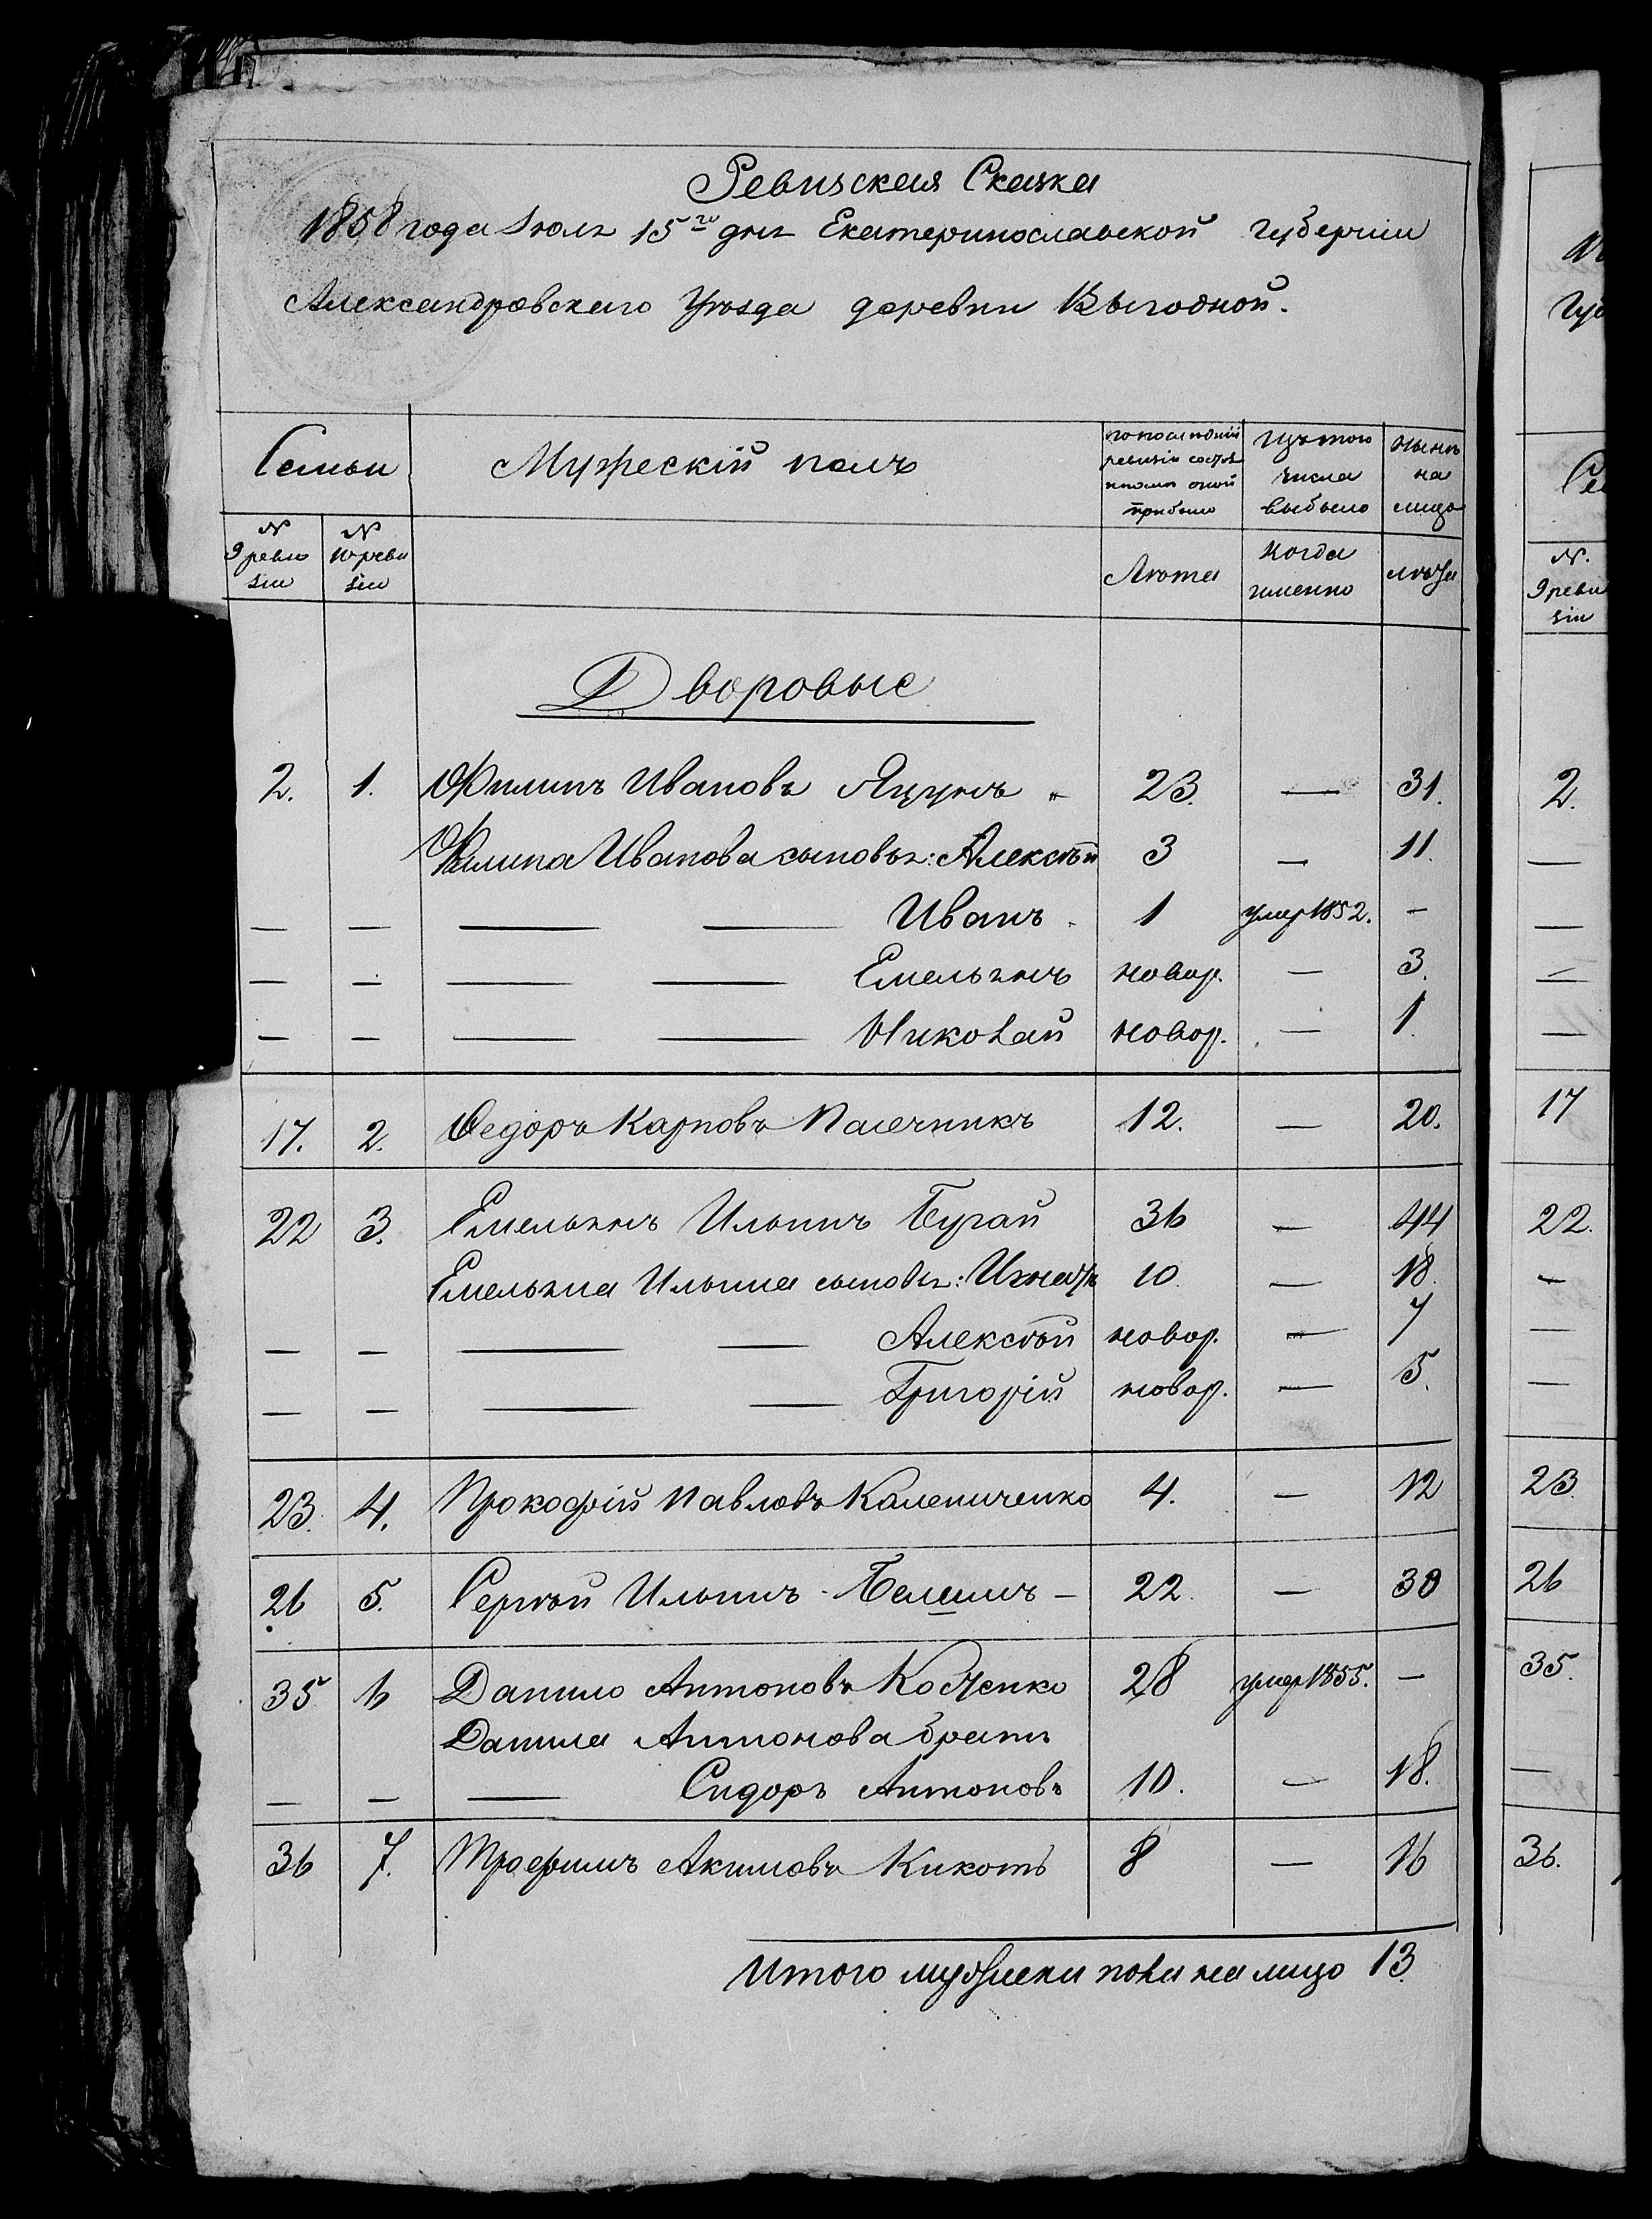 Ревизская Сказка
1858 года Іюля 15го дня Екатеринославской губерніи
Александровскаго Уѣзда деревни Выгодной.
Семьи
Мужескій полъ
по послѣдній ревизіи состоя и послѣ оной прибыло
Изъ того числа выбыло
нынѣ на лицо
N 9 ревизіи
N 10 ревизіи
Лѣта
Когда именно
лѣта
Дворовые
2. 1. Филипъ Ивановъ Яцунъ 23. — 31.
Филипа Иванова сыновья: Алексѣй 3 — 11.
— — — — Иванъ 1 умер 1852. —
— — — — Емельянъ новор. — 3.
— — — — Николай новор. — 1.
17. 2. Федоръ Карповъ Пасечникъ 12. — 20.
22 3. Емельянъ Ильинъ Бугай 36 — 44
Емельяна Ильина сыновья: 10. — 18.
— — — — Алексѣй новор. — 7
— — — — Григорій новор. — 5.
23. 4. Прокофій Павловъ Калениченко 4. — 12
26 5. Сергѣй Ильинъ — 22. — 30
35 6 Данило Антоновъ 28 умер 1855. —
Данила Антонова братъ
— — — Сидоръ Антоновъ 10. — 18.
36 7. Трофимъ Акимовъ Кикоть 8 — 16
Итого мужески пола на лицо 13.
N. 9 ревизіи
2.
—
—
—
—
17
22.
—
—
—
23
26
35.
—
36.